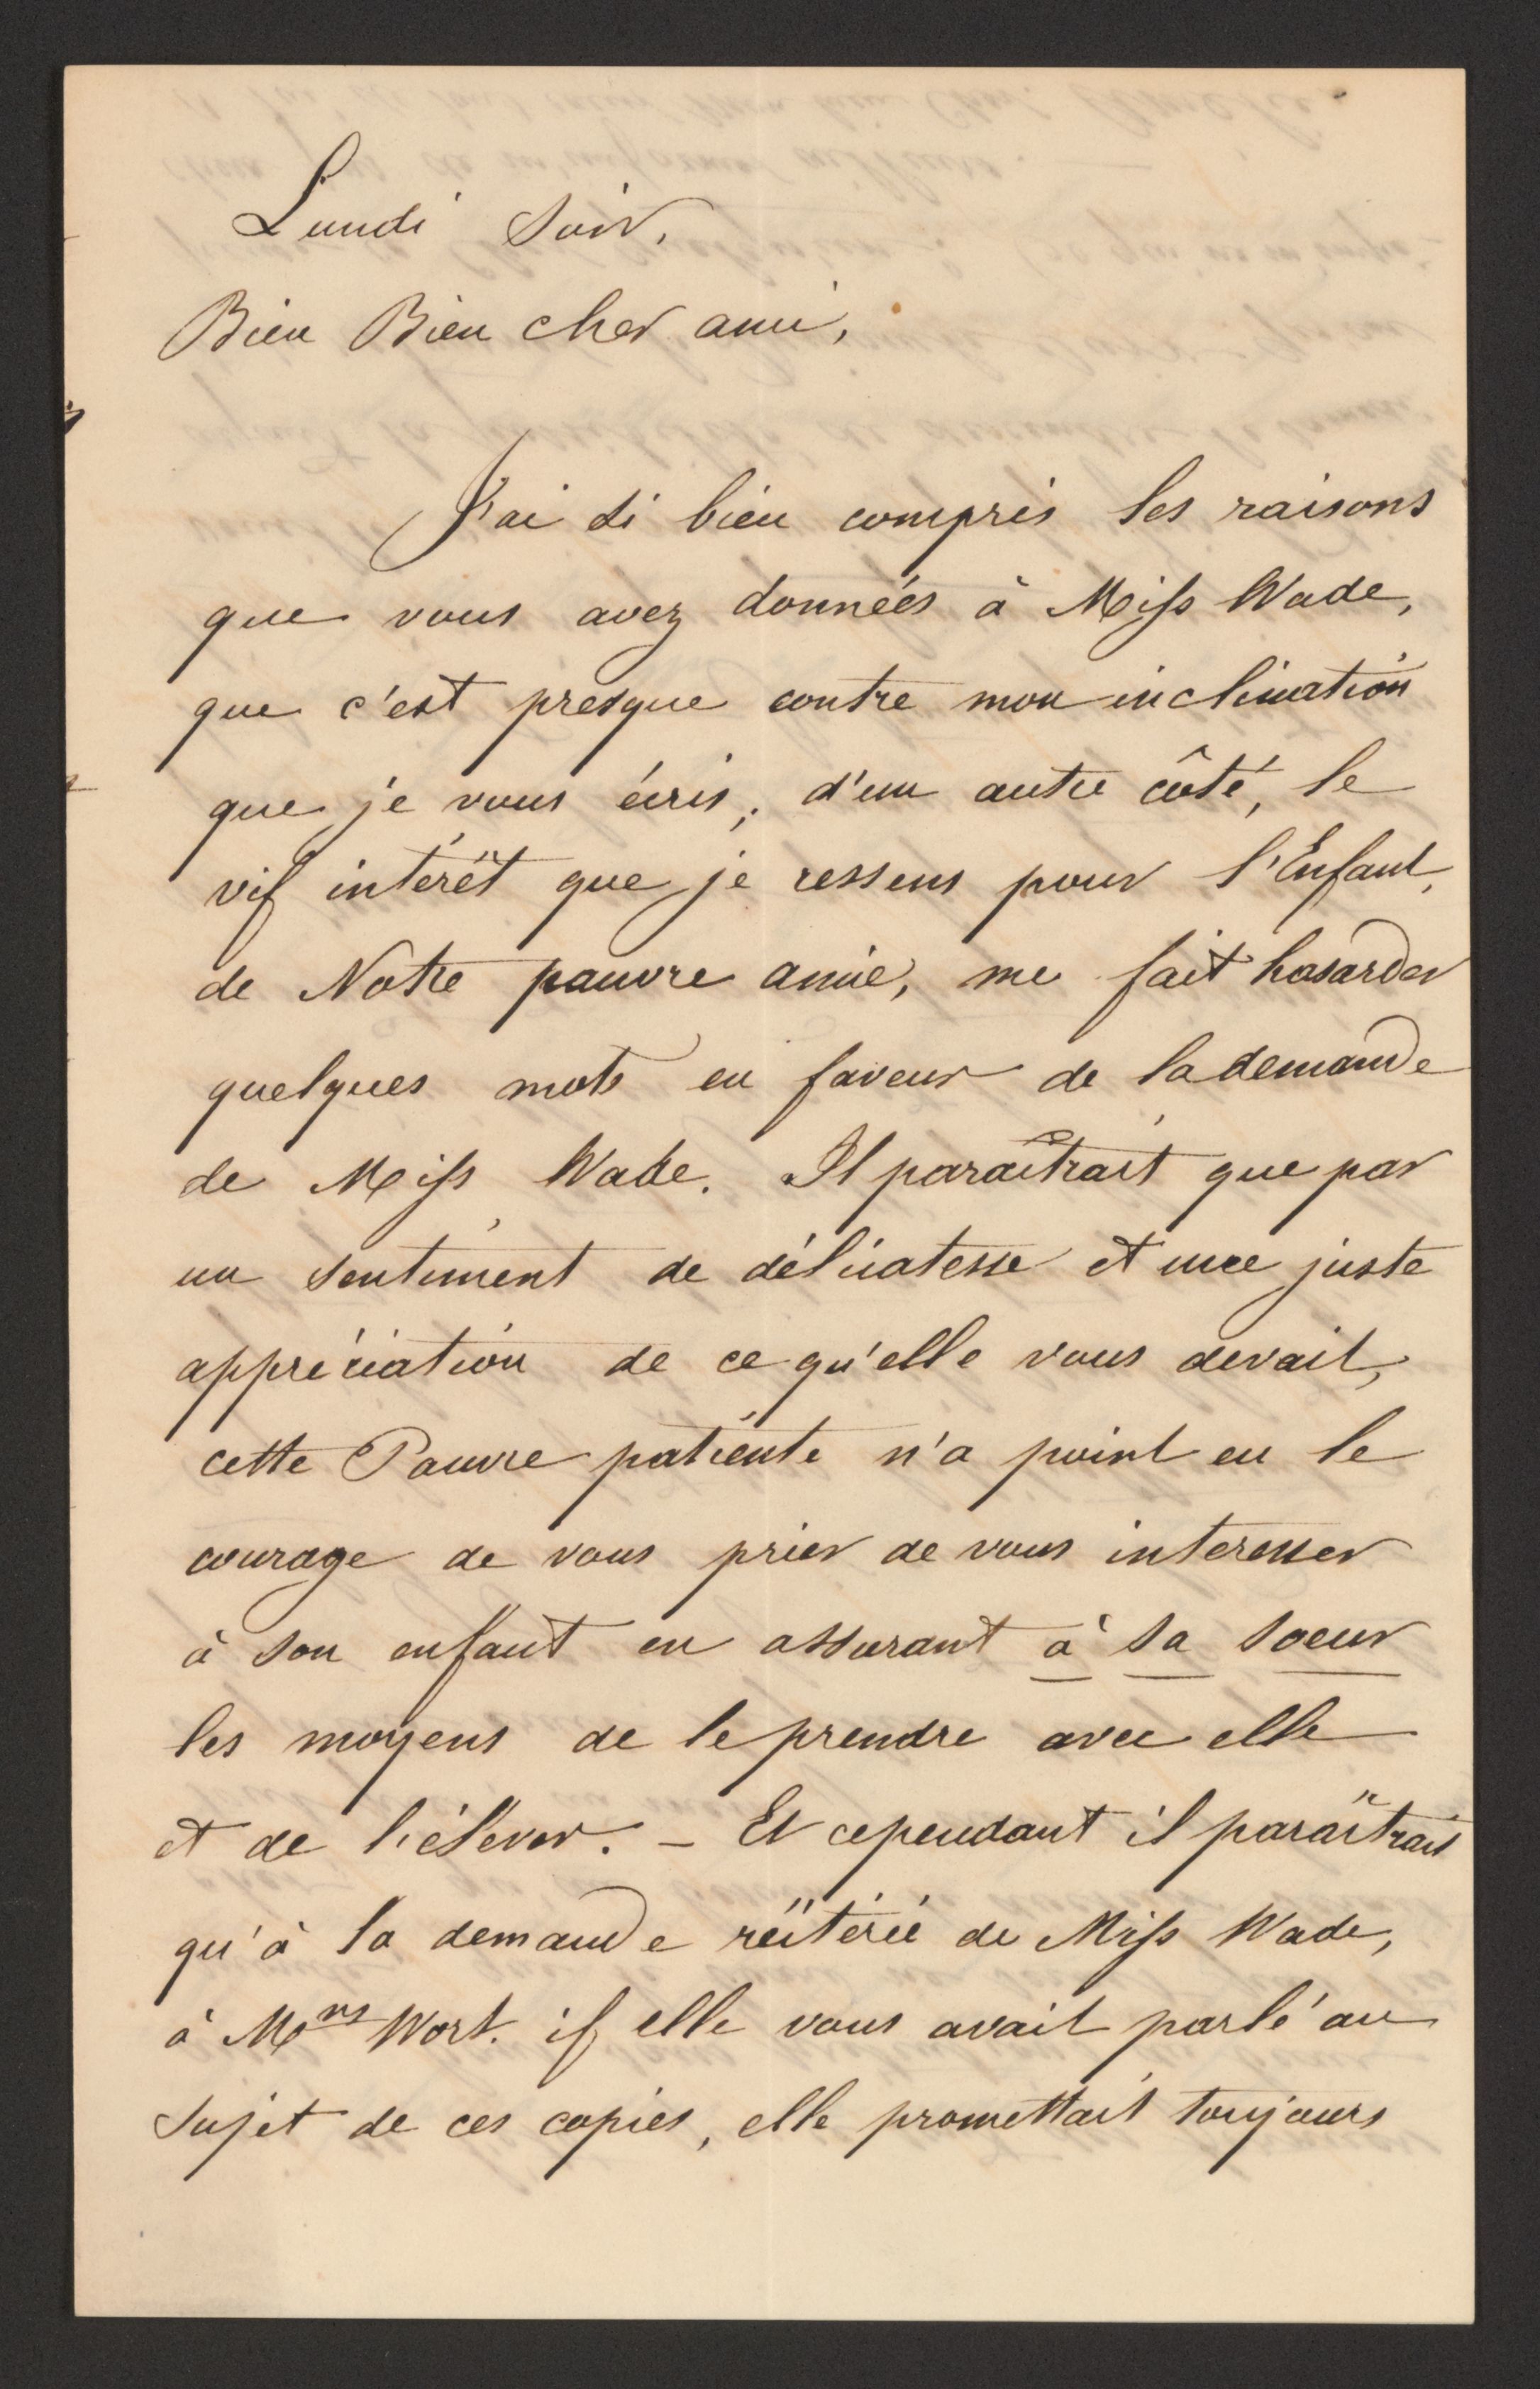 Lundi soir,
Bien Bien cher ami,
J'ai si bien compris les raisons
que vous avez données à Miss Wade,
que c'est presque contre mon inclination
que je vous écris; d'un autre côté, le
vif intérêt que je ressens pour l'Enfant,
de Notre pauvre amie, me fait hasarder
quelques mots en faveur de la demande
de Miss Wade. Il paraîtrait que par
un sentiment de délicatesse et une juste
appréciation de ce qu'elle vous devait,
cette Pauvre patiente n'a point eu le
courage de vous prier de vous interesser
à son enfant en assurant à sa soeur
les moyens de le prendre avec elle
et de l'élever. – Et cependant il paraîtrait
qu'à la demande réitérée de Miss Wade,
à Mrs Wort. if elle vous avait parlé au
sujet de ces copies, elle promettait toujours